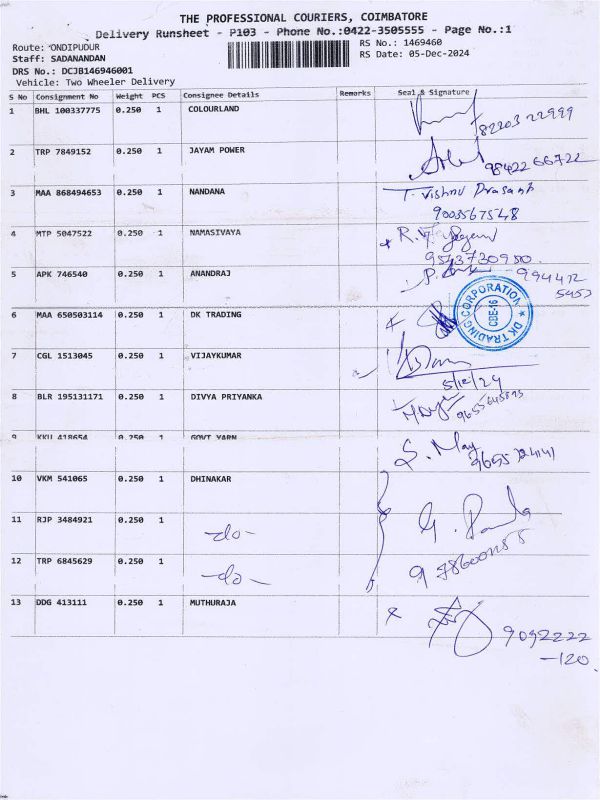 THE PROFESSIONAL COURIERS, COIMBATORE
Delivery Runsheet - P103 - Phone No.:0422-3505555 - Page No.:1
Route: ONDIPUDUR
RS No.: 1469460
Staff: SADANANDAN
RS Date: 05-Dec-2024
DRS No.: DCJB146946001
Vehicle: Two Wheeler Delivery
S No Consignment No Weight PCS Consignee Details Remarks Seal & Signature
1 BHL 100337775 0.250 1 COLOURLAND
82203 22999
2 TRP 7849152 0.250 1 JAYAM POWER
98422 66722
3 MAA 868494653 0.250 1 NANDANA T. Vishnu Prasanth
9003567548
4 MTP 5047522 0.250 1 NAMASIVAYA
9543730950.
5 APK 746540 0.250 1 ANANDRAJ
994412
5453
6 MAA 650503114 0.250 1 DK TRADING
DK TRADING CORPORATION
CBE-16
7 CGL 1513045 0.250 1 VIJAYKUMAR
5/12/24
8 BLR 195131171 0.250 1 DIVYA PRIYANKA
9 KKU 418654 0.250 1 GOVT YARN
10 VKM 541065 0.250 1 DHINAKAR
11 RJP 3484921 0.250 1 -do-
12 TRP 6845629 0.250 1 -do-
13 DDG 413111 0.250 1 MUTHURAJA
9092222
-120.